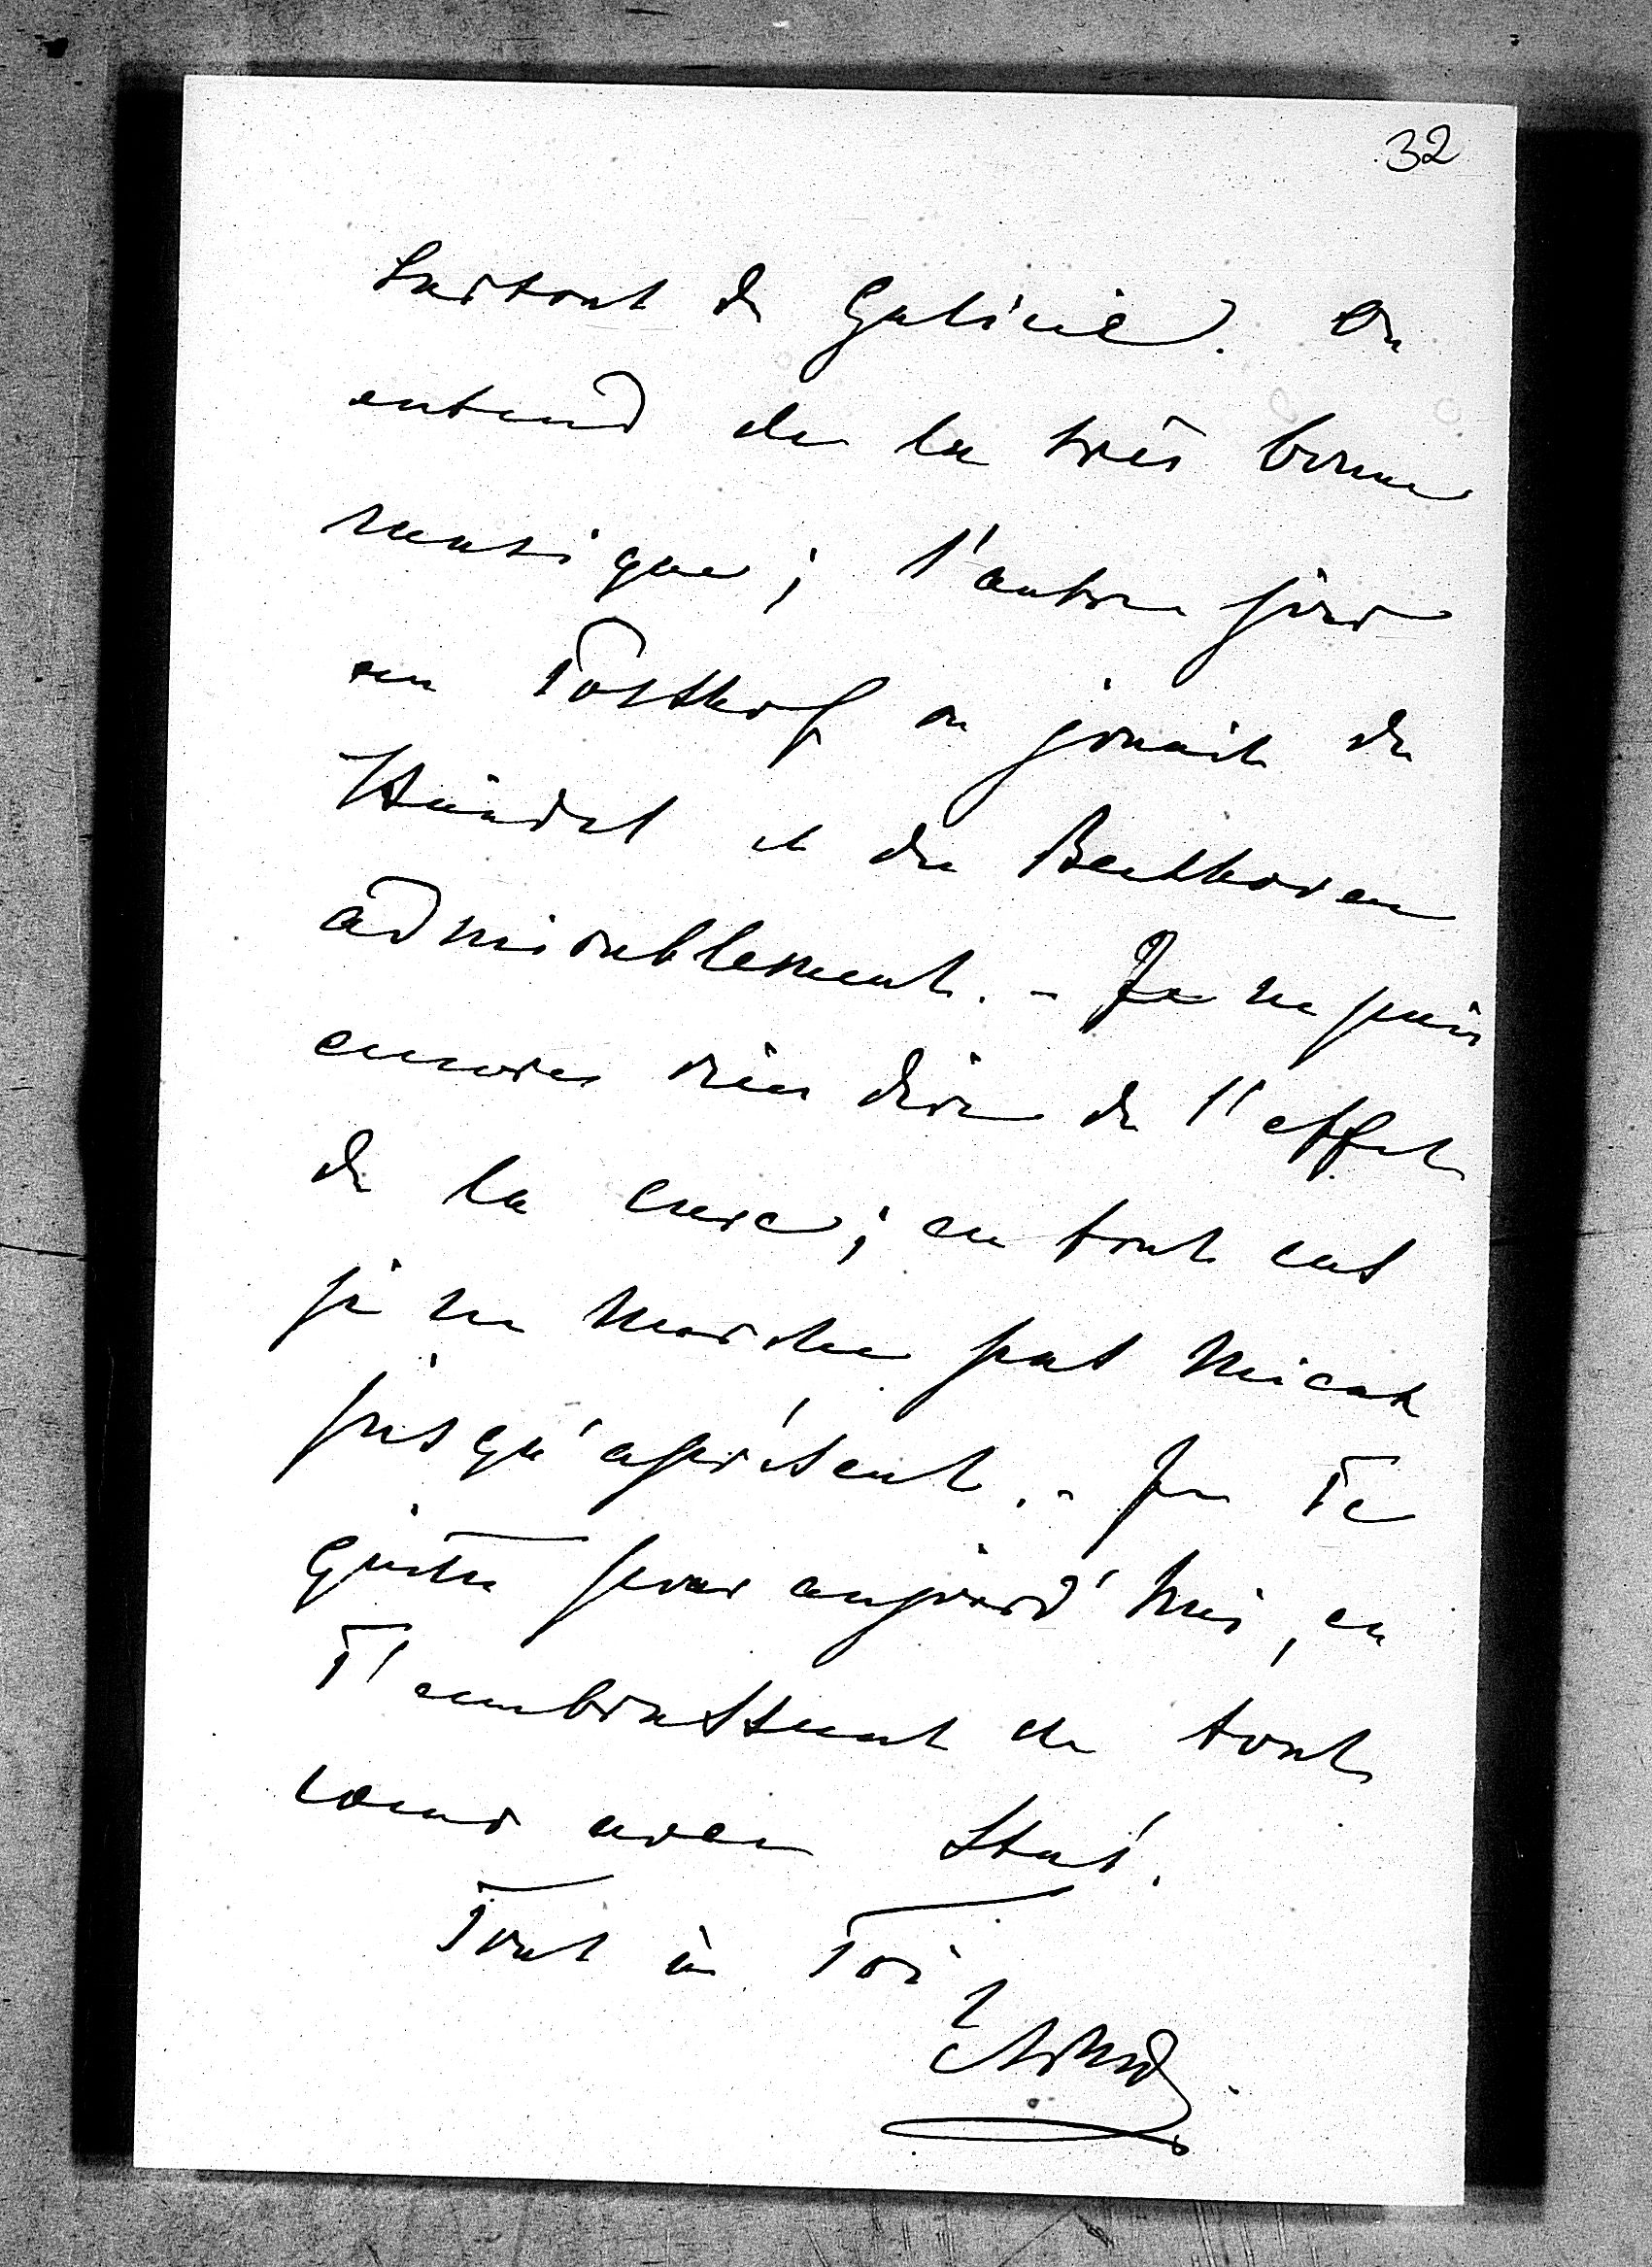 32
surtout de Galicie. On
entend de la très bonne
musique; l'autre jour
au Posthof on jouait du
Händel et du Beethoven
admirablement. - Je ne puis
encore rien dire de l'effet
de la cure; en tout cas
je ne marche pas mieux
jusqu'aprésent. - Je Te
quitte pour aujourd'hui, en
T'embrassant de tout
coeur avec Stas.
Tout à Toi